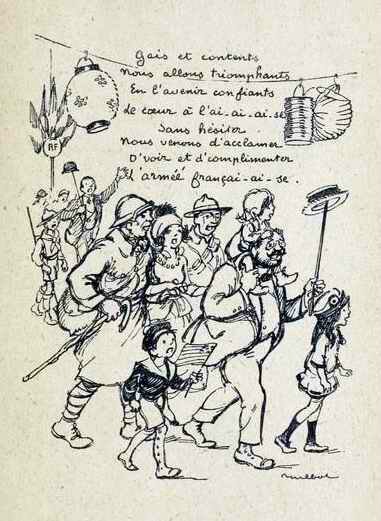 Gais et contents
Nous allons triomphants
En l'avenir confiants
Le cœur à l'ai-ai-ai-se
Sans hésiter.
Nous venons d'acclamer
D'voir et d'complimenter
L'armée françai-ai-se.
RF
Poulbot